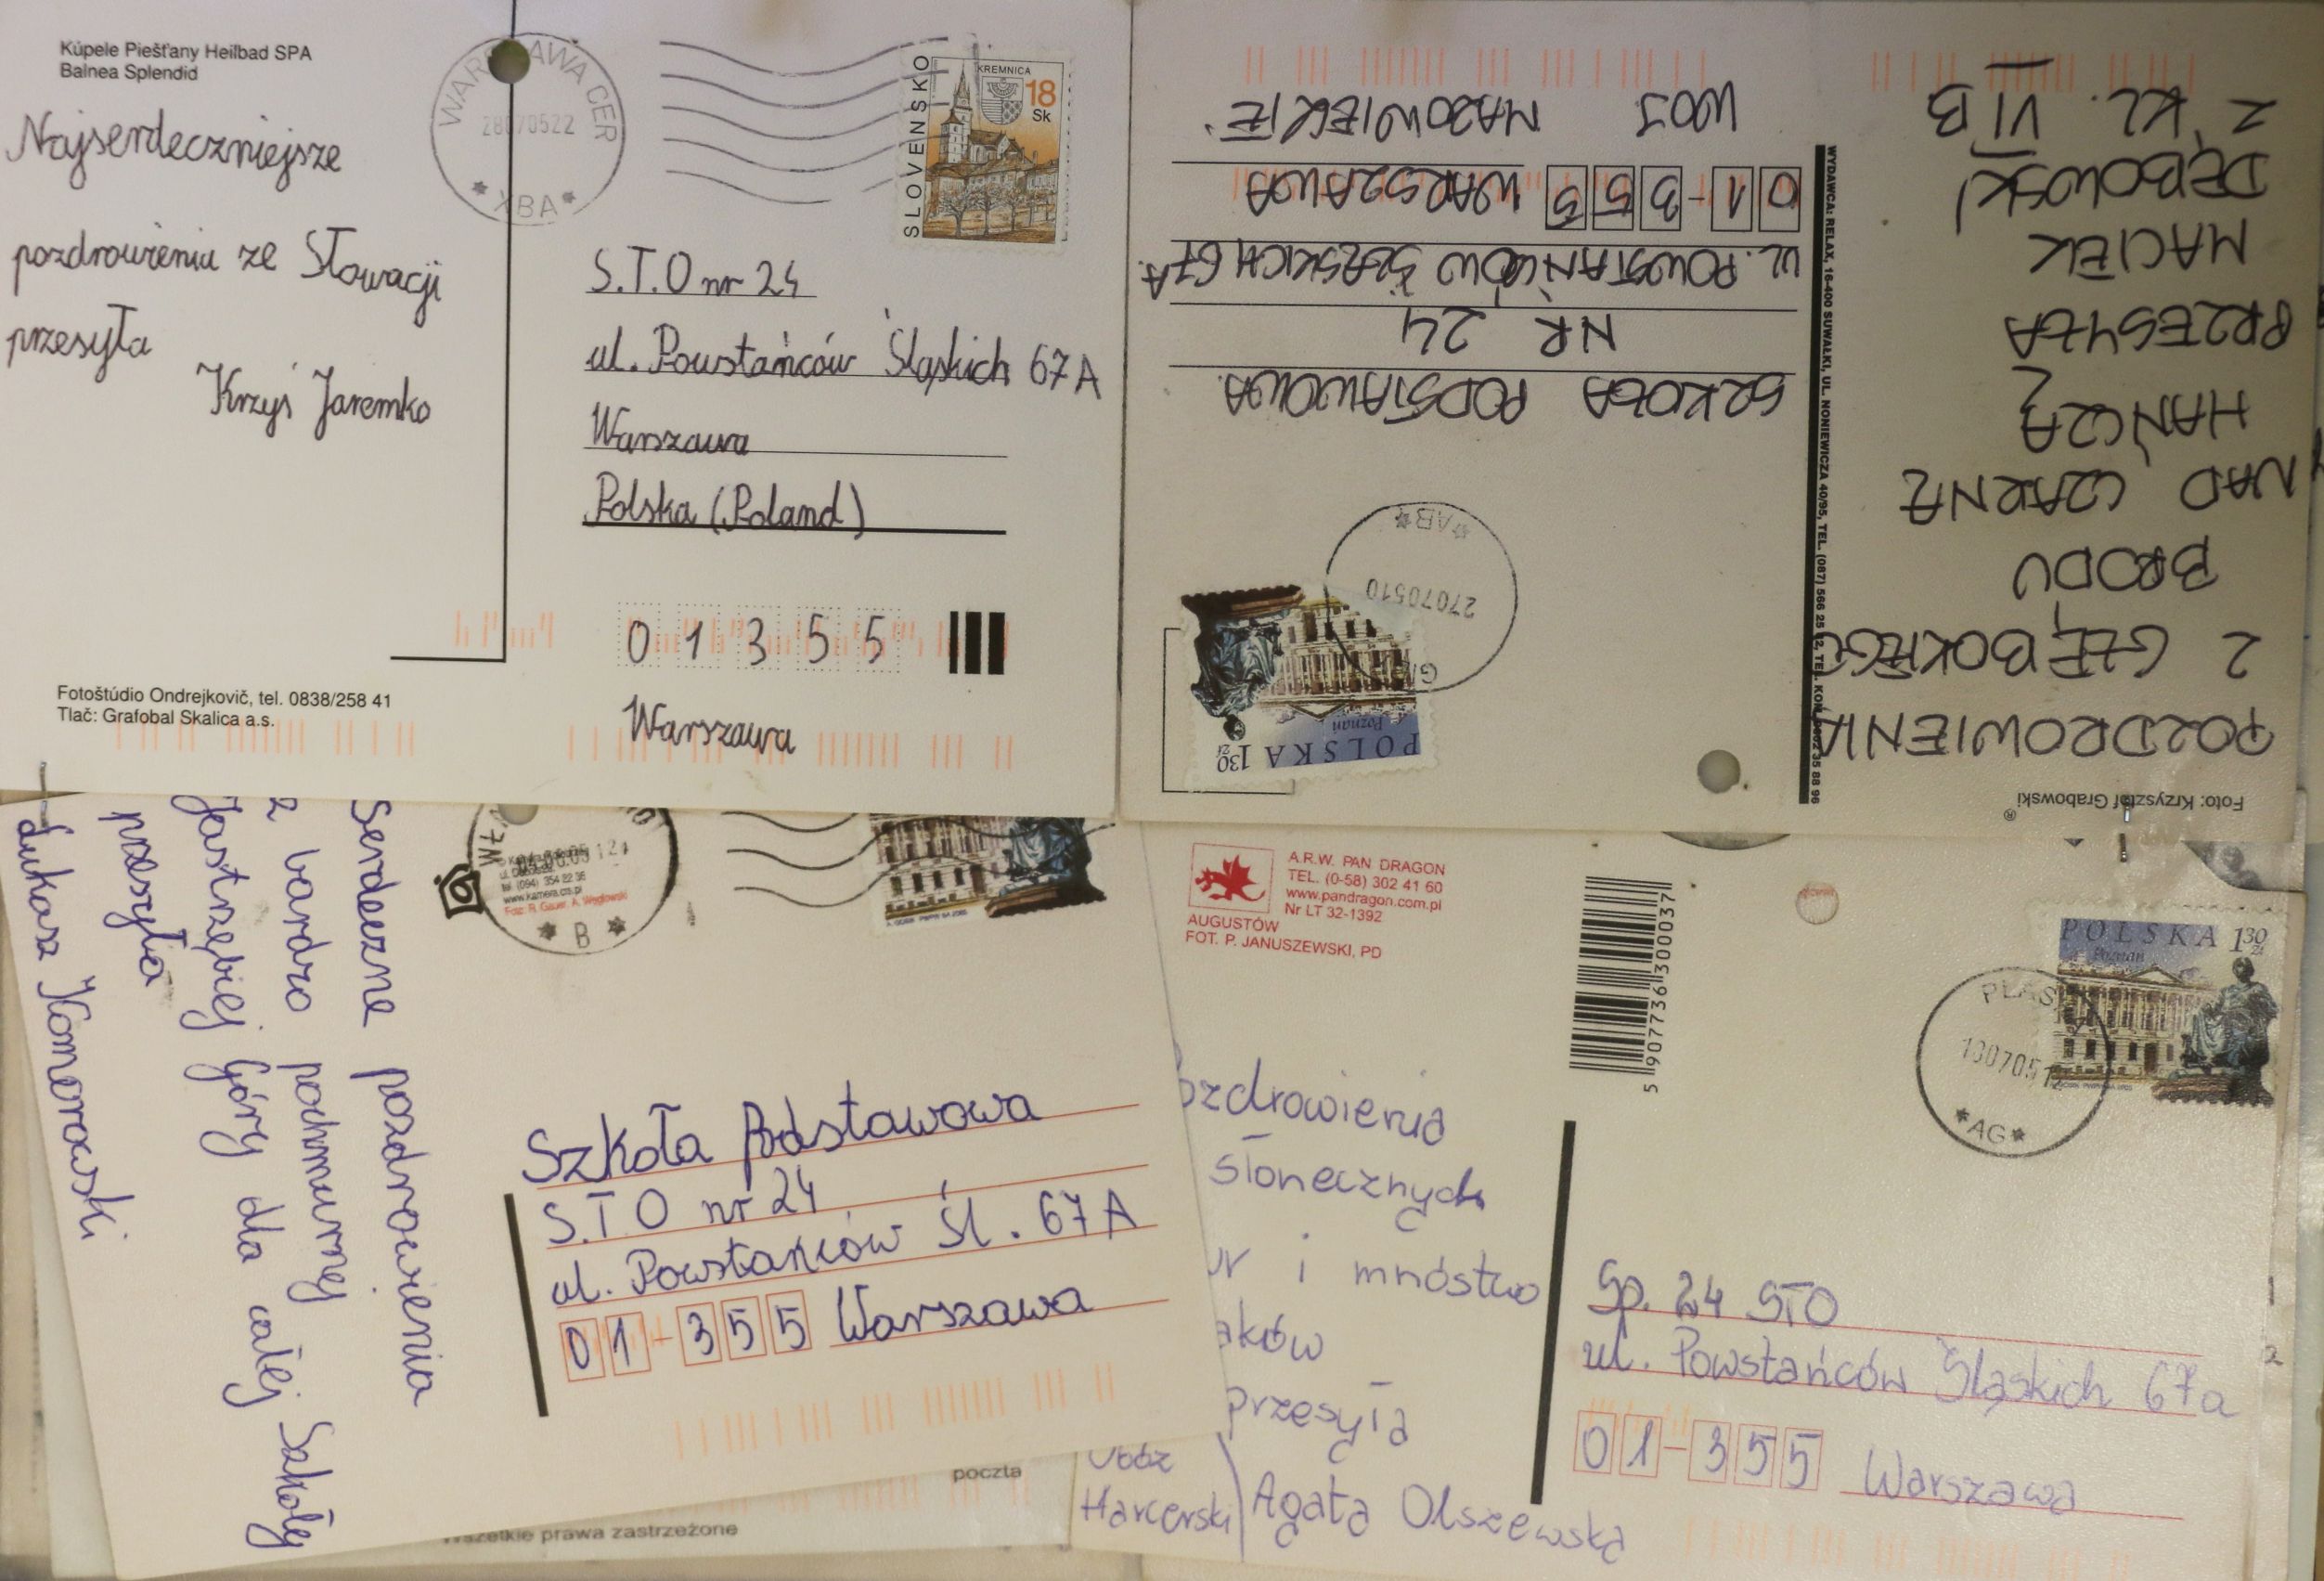 Kúpele Piešťany Heilbad SPA
Balnea Splendid
Najserdeczniejsze
pozdrowienia ze Słowacji
przesyła
Krzyś Jaremko
Fotoštúdio Ondrejkovič, tel. 0838/258 41
Tlač: Grafobal Skalica a.s.
WARSZAWA CER
28070522
* XBA *
SLOVENSKO
KREMNICA
18
Sk
S.T.O nr 24
ul. Powstańców Śląskich 67A
Warszawa
Polska (Poland)
0 1 3 5 5
Warszawa
Foto: Krzysztof Grabowski
POZDROWIENIA
Z GŁĘBOKIEGO
BRODU
NAD CZARNĄ
HAŃCZĄ
PRZESYŁA
MACIEK
DĘBOWSKI
Z KL. VI B
WYDAWCA: RELAX, 16-400 SUWAŁKI, UL. NONIEWICZA 40/95, TEL. (087) 566 25
POLSKA 130 zł
Poznań
27070510
*AB*
SZKOŁA PODSTAWOWA
NR 24
UL. POWSTAŃCÓW ŚLĄSKICH 67A.
01-355 WARSZAWA
WOJ MAZOWIECKIE.
Serdeczne pozdrowienia
z bardzo pochmurnej
Jastrzębiej Góry dla całej Szkoły
przesyła
Łukasz Komorowski
tel. (094) 354 22 36
www.kamera.crs.pl
Fot: R. Gauer, A. Węglowski
* B *
Szkoła Podstawowa
S.T O nr 24
ul. Powstańców Śl. 67A
01-355 Warszawa
poczta
Wszelkie prawa zastrzeżone
A.R.W. PAN DRAGON
TEL. (0-58) 302 41 60
www.pandragon.com.pl
Nr LT 32-1392
AUGUSTÓW
FOT. P. JANUSZEWSKI, PD
5 907736 300037
POLSKA 130 zł
Poznań
PŁAS
*AG*
ozdrowienia
słonecznych
ur i mnóstwo
aków
przesyła
Agata Olszewska
Obóz
Harcerski
Sp. 24 STO
ul. Powstańców Śląskich 67a
01-355 Warszawa